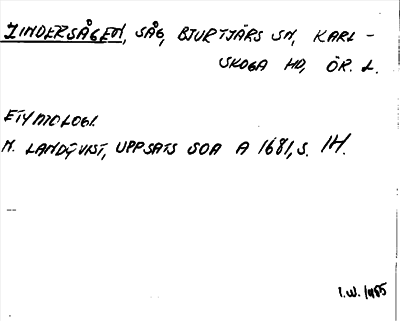 ZINDERSÅGEN, SÅG, BJURTJÄRS SN, KARL-
SKOGA HD, ÖR. L.
ETYMOLOGI.
M. LANDQVIST, UPPSATS SOA A 1681, S. 14.
I.W. 1985